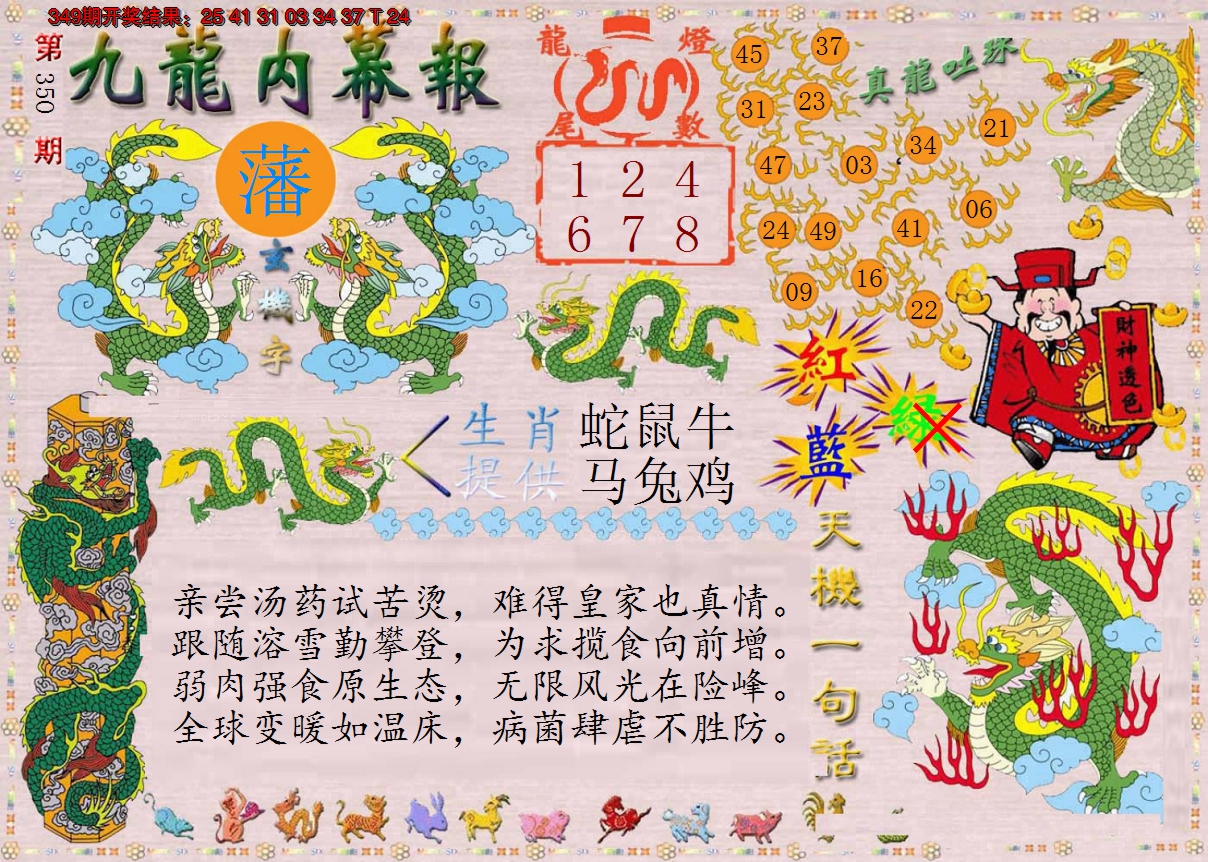 349期开奖结果：25 41 31 03 34 37 T 24
第350期
九龍内幕報
藩
玄機字
龍燈
尾數
1 2 4
6 7 8
真龍吐珠
45 37
31 23
34 21
47 03
06
24 49 41
09 16
22
紅
綠
藍
財神透色
生肖 蛇鼠牛
提供 马兔鸡
天機一句话
亲尝汤药试苦烫，难得皇家也真情。
跟随溶雪勤攀登，为求揽食向前增。
弱肉强食原生态，无限风光在险峰。
全球变暖如温床，病菌肆虐不胜防。